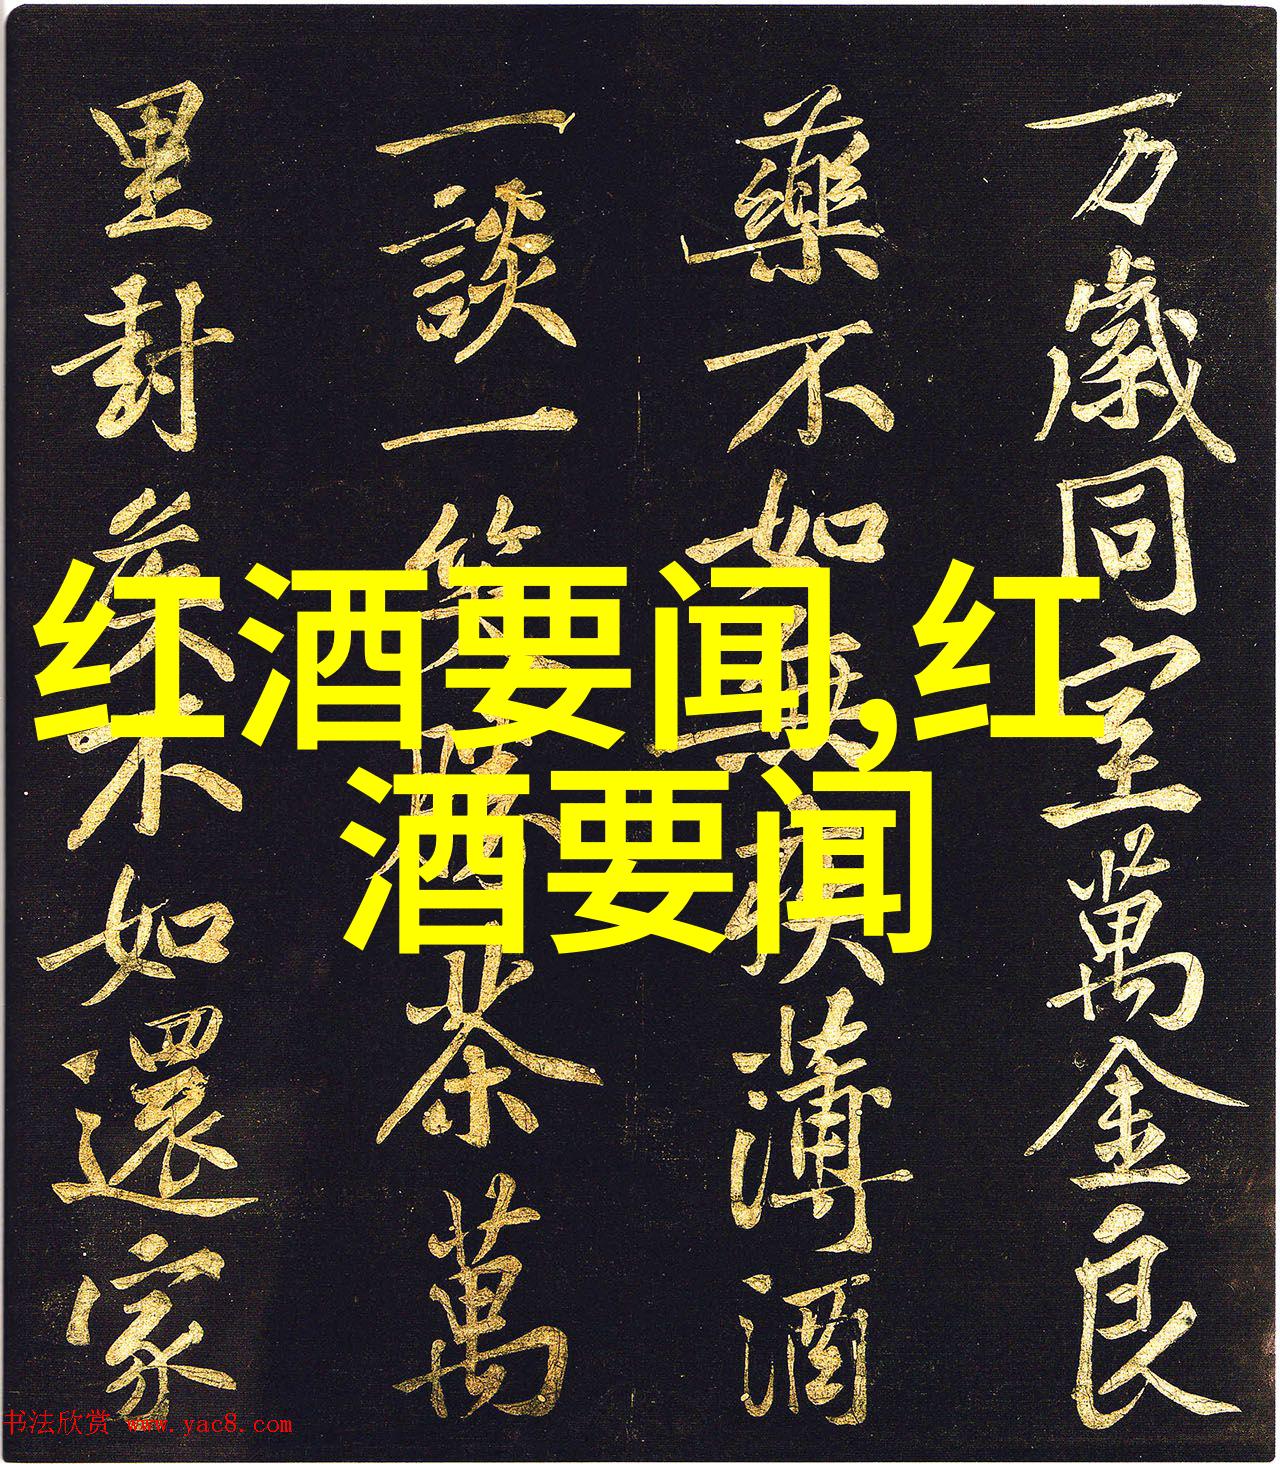 万歲同室萬金良
藥不如無疾薄酒
一談一笑勝茶萬
里封侯不如還家
红酒要闻,红
酒要闻
书法欣赏 www.yac8.com